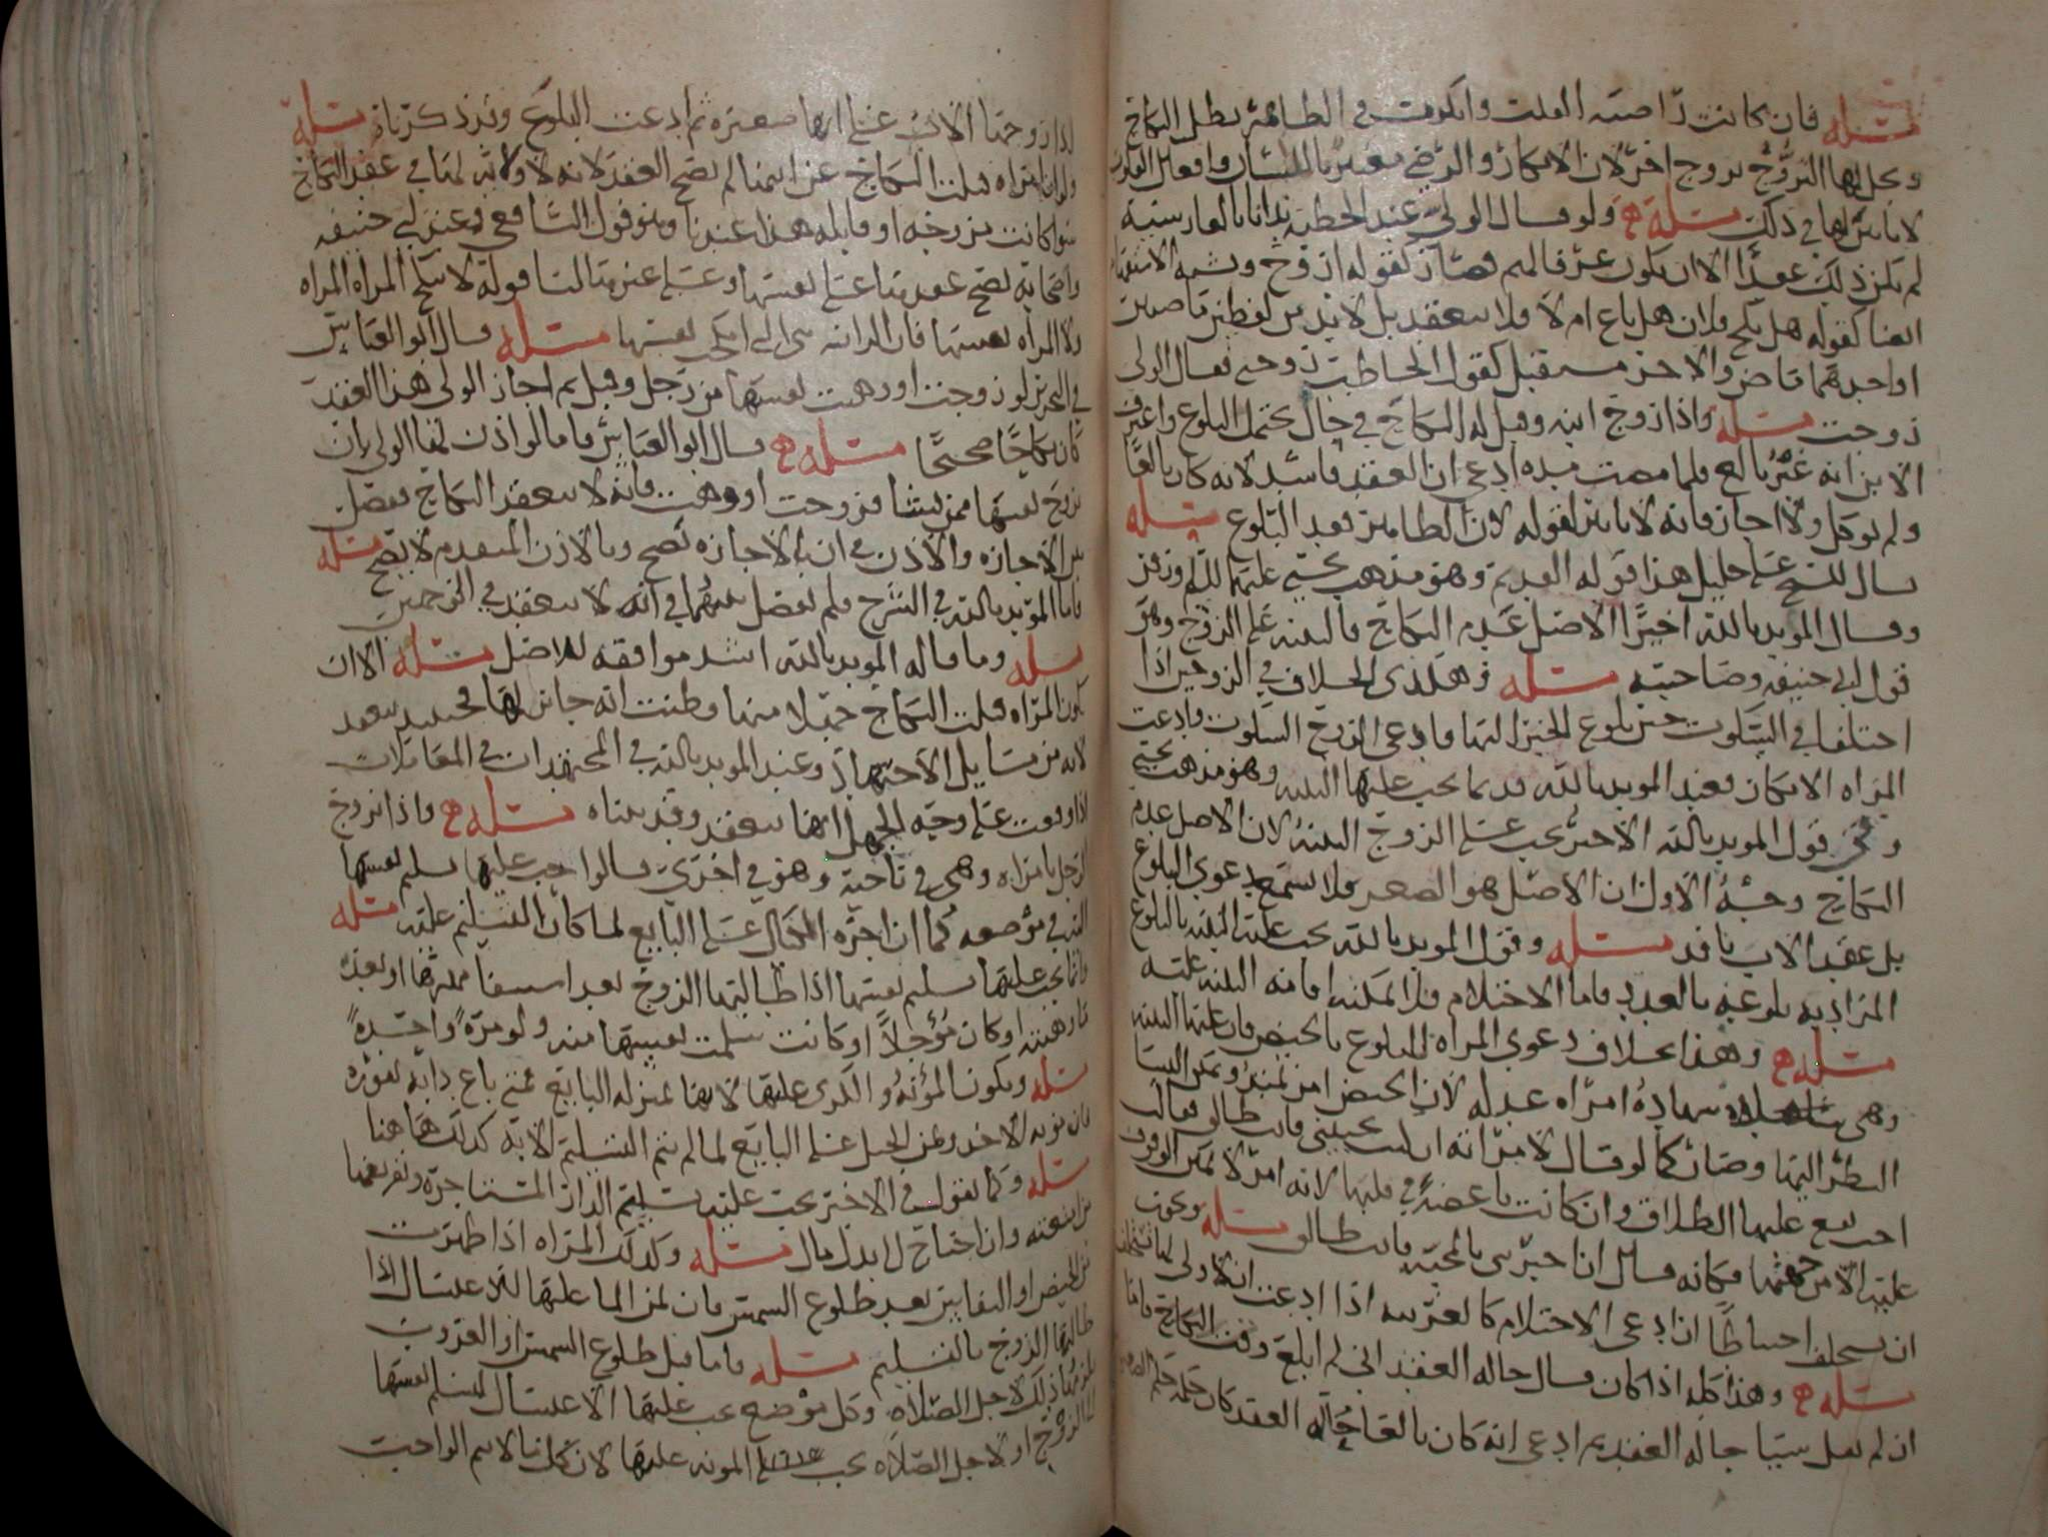 مسئله فان كانت راضيه القلب وانكرت في الظاهر بطل النكاح
ويحل لها التزوج بزوج اخر لان الانكار والرضى معتبر باللسان وافعال القلوب
لا تاثير لها في ذلك مسئله ولو قال الولي عند الخطبه
لم يكن ذلك عقدا الا ان يكون عرفا لهم فصار كقوله ازوج
ايضا كقوله هل نكح فلان هل باع ام لا فلا ينعقد بل لا بد من لفظين ماضيين
او احدهما ماض والاخر مستقبل كقول الخاطب زوجني فقال الولي
زوجت مسئله واذا زوج ابنه وقبل له النكاح في حال يحتمل البلوغ واعترف
الابن انه غير بالغ فلما مضت مده ادعى ان العقد فاسد لانه كان بالغا
ولم يوكل ولا اجاز فانه لا تاثير لقوله لان الظاهر بعد البلوغ مسئله
قال الشيخ علي خليل هذا قوله القديم وهو مذهب يحيى عليهما السلم وزفر
وقال المويد بالله اخيرا الاصل عدم النكاح فالبينه على الزوج وهو
قول ابي حنيفه وصاحبيه مسئله وهكذى الخلاف في الزوجين اذا
اختلفا في السكوت حين بلوغ الخبر اليها فادعى الزوج السكوت وادعت
المراه الانكار فعند المويد بالله قديما يجب عليها البينه وهو مذهب يحيى
وعلى قول المويد بالله الاخير يجب على الزوج البينه لان الاصل عدم
النكاح وجه الاول ان الاصل هو الصغر فلا تسمع دعوى البلوغ
بل عقد الاب نافد مسئله وقول المويد بالله يجب عليه البينه بالبلوغ
المراد به بلوغه بالعدد فاما الاحتلام فلا يمكنه اقامه البينه عليه
مسئله وهذا بخلاف دعوى المراه البلوغ بالحيض فان عليها البينه
وهي شهاده امراه عدله لان الحيض امر يمكن النسا
النظر اليها وصار كما لو قال لامراته ان كنت تحبيني فانت طالق فقالت
احب يقع عليها الطلاق وان كانت باغضه في قلبها لانه امر لا يمكن الوقوف
عليه الا من جهتها فكانه قال ان اخبرتيني بالمحبه فانت طالق مسئله ويجوز
ان يستحلف احتياطا ان ادعى الاحتلام
مسئله وهذا كله اذا كان قال حاله العقد اني لم ابلغ وقت النكاح فاما
ان لم يقل شيا حاله العقد ثم ادعى انه كان بالغا حاله العقد كان
زوجها الاب على انها صغيره ثم ادعت البلوغ وقد ذكرناه مسئله
ولو ان امراه قبلت النكاح عن ابنها لم يصح العقد لانه لا ولايه لها في عقد النكاح
سوا كانت مزوجه او قابله هذا عندنا وهو قول الشافعي وعند ابي حنيفه
واصحابه يصح عقدها على نفسها وعلى غيرها لنا قوله لا تنكح المراه المراه
ولا المراه نفسها فان الزانيه هي التي انكحت نفسها مسئله قال ابو العباس
في التحرير لو زوجت او وهبت نفسها من رجل وقبل ثم اجاز الولي هذا العقد
كان نكاحا صحيحا مسئله قال ابو العباس فاما لو اذن لها الولي بان
تزوج نفسها ممن تشا فزوجت او وهبت فانه لا ينعقد النكاح ففصل
بين الاجازه والاذن في ان بالاجازه تصح وبالاذن المتقدم لا تصح مسئله
فاما المويد بالله في الشرح فلم يفصل بينهما في انه لا ينعقد في الوجهين
مسئله وما قاله المويد بالله اشد موافقه للاصل مسئله الا ان
تكون المراه قبلت النكاح جهلا منها وظنت انه جايز لها فحينئذ ينعقد
لانه من مسايل الاجتهاد وعند المويد بالله في المجتهدات في المعاملات
اذا وقعت على وجه الجهل انها تنعقد وقد بيناه مسئله واذا تزوج
الرجل بامراه وهي في ناحيه وهو في اخرى قالوا يجب عليها تسليم نفسها
اليه في موضعه كما ان اجره الحمال على البايع لما كان التسليم عليه مسئله
وانما يجب عليها تسليم نفسها اذا طالبها الزوج بعد استيفا مهرها او بعد
او كان مؤجلا او كانت سلمت نفسها منه ولو مره واحده
مسئله ويكون المؤنه والكرى عليها لانها بمنزله البايع فمن باع دابه
على البايع لما لم يتم التسليم الا به كذلك هاهنا
مسئله وكما نقول في الاخير يجب عليه تسليم الدار المستاجره وتفريغها
من امتعته وان احتاج الى بذل مال مسئله وكذلك المراه اذا طهرت
من الحيض او النفاس بعد طلوع الشمس فان ثمن الما عليها للاغتسال اذا
طالبها الزوج بالتسليم مسئله فاما قبل طلوع الشمس او الغروب
ذلك لاجل الصلاه وكل موضع يجب عليها الاغتسال لتسلم نفسها
الى الزوج او لاجل الصلاه يجب المونه عليها لان كمال الامر الواجب